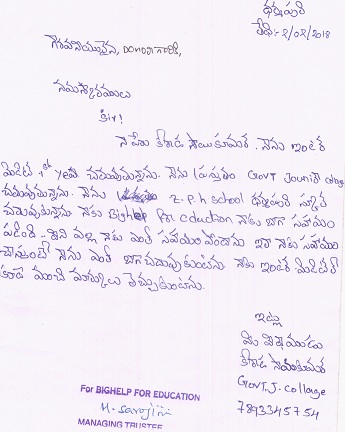 ధర్మపురి
తేది:- 2/02/2018
గౌరవనీయులైన, DONOR గారికి,
నమస్కారములు
Sir!
నా పేరు సాయికుమార్. నేను ఇంటర్
మీడియట్ 1st year చదువుతున్నాను. నేను ప్రస్తుతం GOVT Jounior college
చదువుతున్నాను. నేను Z.P.H school ధర్మపురి స్కూల్
చదువుతున్నాను నాకు BigHelp For eduction నాకు బాగా సహాయం
పడింది.. దీని వల్ల నాకు ఎంతో సహాయం పొందాను ఇలా నాకు సహాయం
చేస్తుంటే నేను ఎంతో బాగా చదువుకుంటాను నాకు ఇంటర్ మీడియట్లో
కూడా మంచి మార్కులు తెచ్చుకుంటాను.
ఇట్లు
మీ విశ్వాసముడు
సాయికుమార్
GOVT.J. collage
7893345754
For BIGHELP FOR EDUCATION
M. Sarojini
MANAGING TRUSTEE